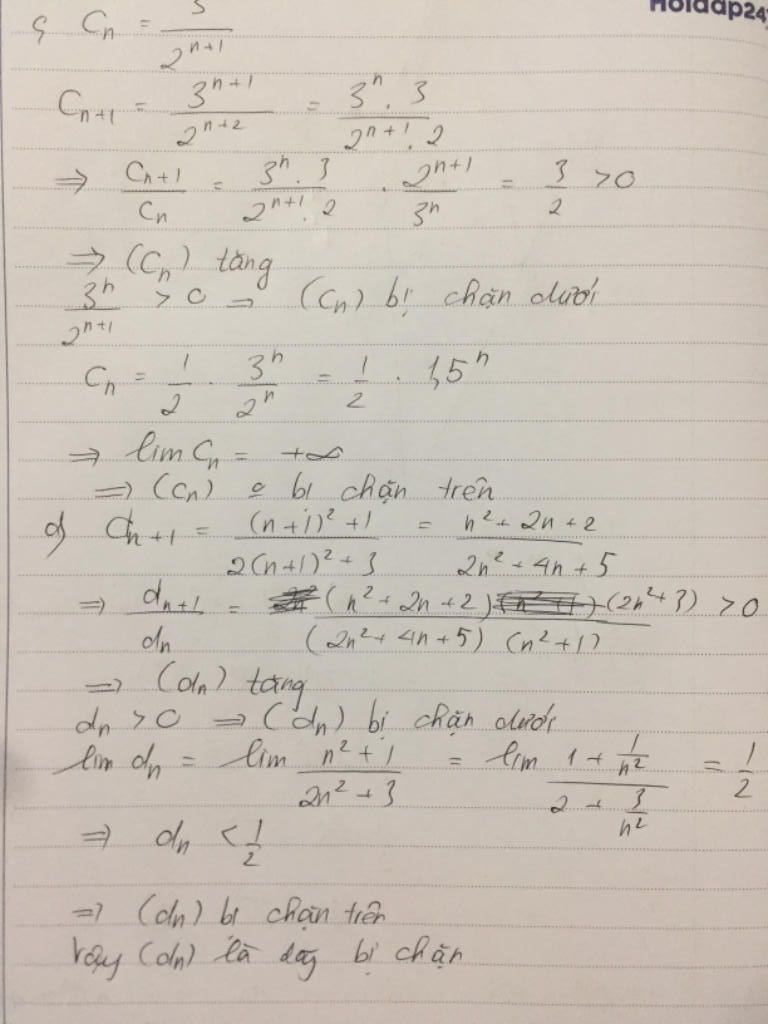 Hoidap247
c) Cₙ = 3 / 2ⁿ⁺¹
Cₙ₊₁ = 3ⁿ⁺¹ / 2ⁿ⁺² = 3ⁿ . 3 / 2ⁿ⁺¹ . 2
⇒ Cₙ₊₁ / Cₙ = 3ⁿ . 3 / 2ⁿ⁺¹ . 2 . 2ⁿ⁺¹ / 3ⁿ = 3/2 > 0
⇒ (Cₙ) tăng
3ⁿ / 2ⁿ⁺¹ > 0 ⇒ (Cₙ) bị chặn dưới
Cₙ = 1/2 . 3ⁿ / 2ⁿ = 1/2 . 1,5ⁿ
⇒ lim Cₙ = +∞
⇒ (Cₙ) bị chặn trên
d) dₙ₊₁ = (n+1)² + 1 / 2(n+1)² + 3 = n² + 2n + 2 / 2n² + 4n + 5
⇒ dₙ₊₁ / dₙ = (n² + 2n + 2) (2n² + 3) / (2n² + 4n + 5) (n² + 1) > 0
⇒ (dₙ) tăng
dₙ > 0 ⇒ (dₙ) bị chặn dưới
lim dₙ = lim n² + 1 / 2n² + 3 = lim 1 + 1/n² / 2 + 3/n² = 1/2
⇒ dₙ < 1/2
⇒ (dₙ) bị chặn trên
Vậy (dₙ) là dãy bị chặn